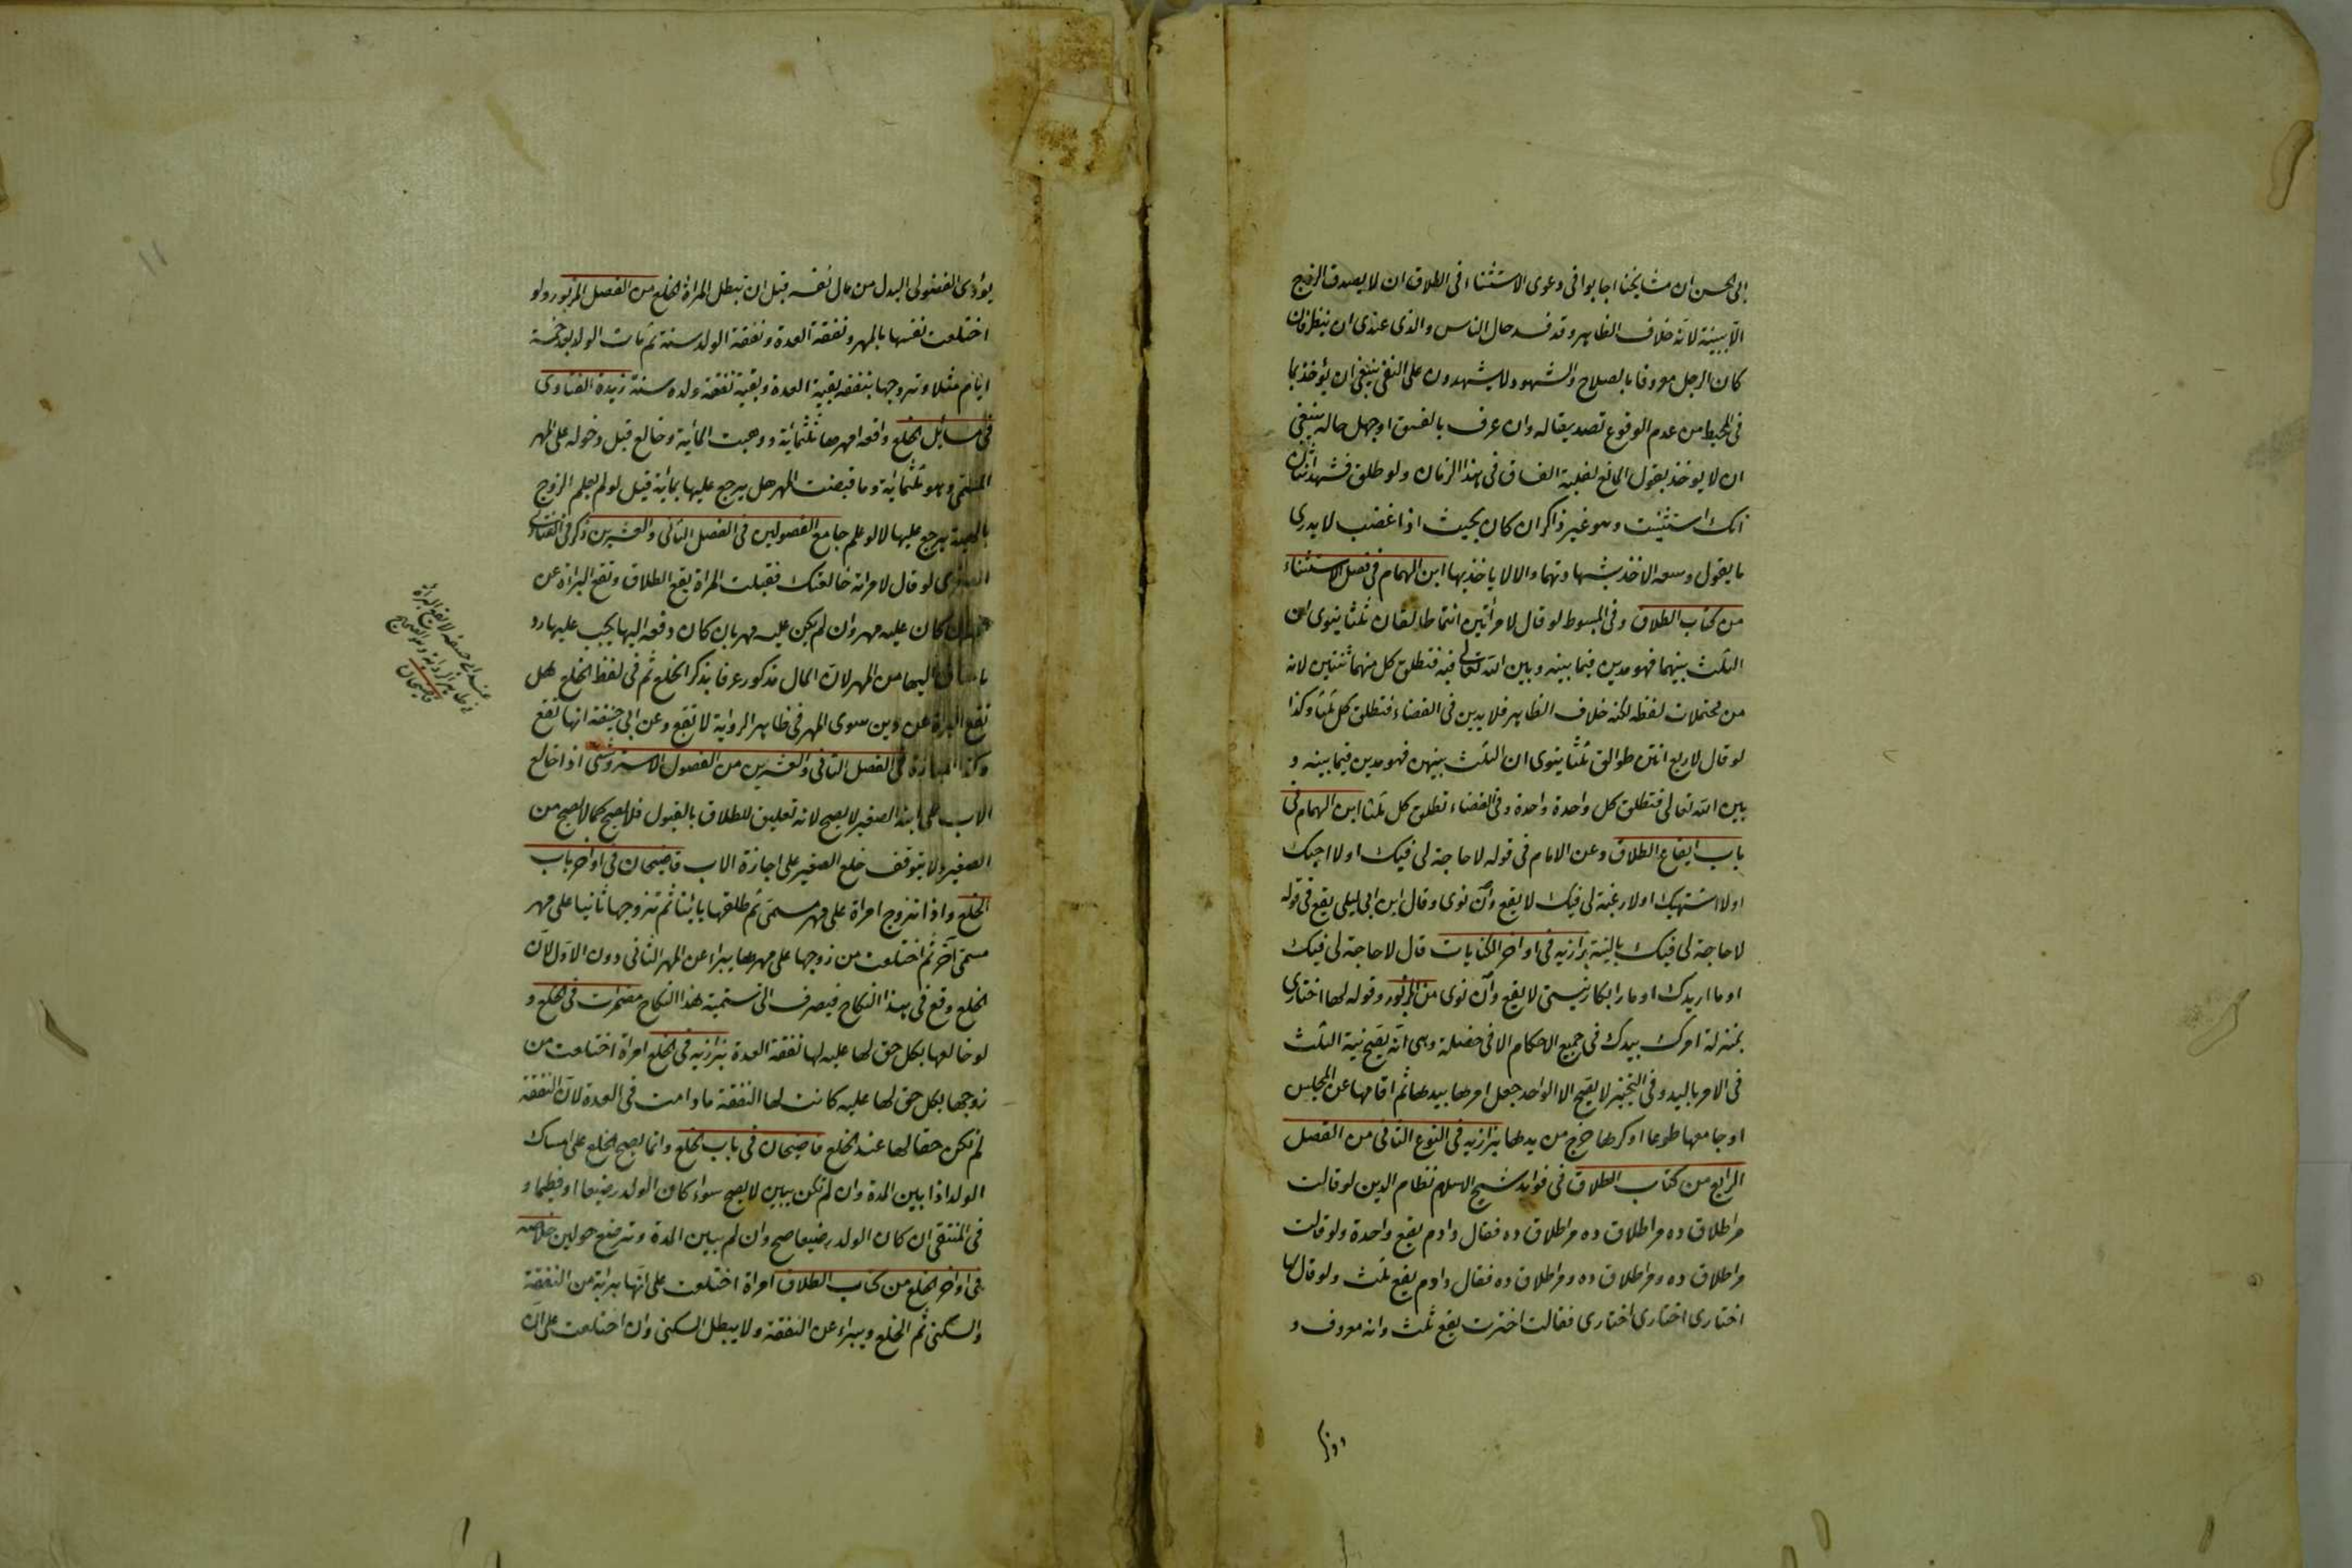 ابى الحسن ان مشايخنا اجابوا فى دعوى الاستثناء فى الطلاق ان لا يصدق الزوج
الا ببينة لانه خلاف الظاهر وقد فسد حال الناس والذى عندى ان ينظر فان
كان الرجل معروفا بالصلاح والشهود لا يشهدون على النفى ينبغى ان يؤخذ بما
فى المحيط من عدم الوقوع تصديقا له وان عرف بالفسق او جهل حاله ينبغى
ان لا يوخذ بقول المانع لغلبة الفساق فى هذا الزمان ولو طلق فشهد اثنان
انك استثنيت وهو غير ذاكر ان كان بحيث اذا غضب لا يدرى
ما يقول وسعه الاخذ بشهادتهما والا لا ياخذ بها ابن الهمام فى فصل الاستثناء
من كتاب الطلاق وفى المبسوط لو قال لامرأتين انتما طالقان ثلثا ينوى ان
الثلث بينهما فهو مدين فيما بينه وبين الله تعالى فيه فتطلق كل منهما ثنتين لانه
من محتملات لفظه لكنه خلاف الظاهر فلا يدين فى القضاء فتطلق كل ثلثا وكذا
لو قال لاربع انتن طوالق ثلثا ينوى ان الثلث بينهن فهو مدين فيما بينه و
بين الله تعالى فتطلق كل واحدة واحدة وفى القضاء تطلق كل ثلثا ابن الهمام فى
باب ايقاع الطلاق وعن الامام فى قوله لا حاجة لى فيك او لا احبك
او لا اشتهيك او لا رغبة لى فيك لا يقع وان نوى وقال ابن ابى ليلى يقع فى قوله
لا حاجة لى فيك بالنية بزازيه فى اواخر الكنايات قال لا حاجة لى فيك
او ما اريدك او مارا بكار نيستى لا يقع وان نوى من المزبور وقوله لها اختارى
بمنزلة امرك بيدك فى جميع الاحكام الا فى خصلة وهى انه يصح نية الثلث
فى الامر باليد وفى التخيير لا يصح الا الواحد جعل امرها بيدها ثم اقامها عن المجلس
او جامعها طوعا او كرها خرج من يدها بزازيه فى النوع الثانى من الفصل
الرابع من كتاب الطلاق فى فوايد شيخ الاسلام نظام الدين لو قالت
مرا طلاق ده مرا طلاق ده مرا طلاق ده فقال دادم يقع واحدة ولو قالت
مرا طلاق ده ومرا طلاق ده ومرا طلاق ده فقال دادم يقع ثلث ولو قال لها
اختارى اختارى اختارى فقالت اخترت يقع ثلث وانه معروف و
يؤدى الفضولى البدل من مال نفسه قبل ان تبطل المراة الخلع من الفصل المزبور ولو
اختلعت نفسها بالمهر ونفقة العدة ونفقة الولد سنة ثم مات الولد بعد خمسة
ايام مثلا وتزوجها بنفقه بقية العدة وبقية نفقة ولده سنة زبدة الفتاوى
فى مسائل الخلع واقعه امهرها ثلثمائة ووهبت المائة وخالع قبل دخوله على المهر
المسمى وهو ثلثمائة وما قبضت المهر هل يرجع عليها بمائة قيل لو لم يعلم الزوج
بالهبة يرجع عليها لا لو علم جامع الفصولين فى الفصل الثانى والعشرين ذكر فى الفتاوى
الصغرى لو قال لامراته خالعتك فقبلت المراة يقع الطلاق وتقع البراءة عن
كان عليه مهر وان لم يكن عليه مهر بان كان دفعه اليها يجب عليها رد
ما ساق اليها من المهر لان المال مذكور عرفا بذكر الخلع ثم فى لفظ الخلع هل
تقع البراءة عن دين سوى المهر فى ظاهر الرواية لا تقع وعن ابى حنيفة انها تقع
وكذا المباراة فى الفصل الثانى والعشرين من الفصول الاستروشنى اذا خالع
الاب على ابنه الصغير لا يصح لانه تعليق للطلاق بالقبول فلا يصح كما لا يصح من
الصغير ولا يتوقف خلع الصغير على اجازة الاب قاضيخان فى اواخر باب
الخلع واذا تزوج امراة على مهر مسمى ثم طلقها بائنا ثم تزوجها ثانيا على مهر
مسمى آخر ثم اختلعت من زوجها على مهرها يبراء عن المهر الثانى دون الاول لان
الخلع وقع فى هذا النكاح فيصرف الى تسمية هذا النكاح مضمرات فى الخلع و
لو خالعها بكل حق لها عليه لها نفقة العدة بزازيه فى الخلع امراة اختلعت من
زوجها بكل حق لها عليه كانت لها النفقة ما دامت فى العدة لان النفقة
لم تكن حقا لها عند الخلع قاضيخان فى باب الخلع وانما يصح الخلع على امساك
الولد اذا بين المدة وان لم تكن يبين لا يصح سواء كان الولد رضيعا او فطيما و
فى المنتقى ان كان الولد رضيعا صح وان لم يبين المدة وترضع حولين خلاصه
فى اواخر الخلع من كتاب الطلاق امراة اختلعت على انها بريئة من النفقة
والسكنى ثم الخلع ويبراء عن النفقة ولا يبطل السكنى وان اختلعت على ان
قاضيخان